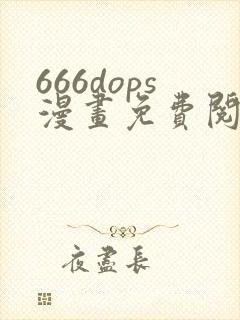 666dops
漫畫免費閱
夜盡長